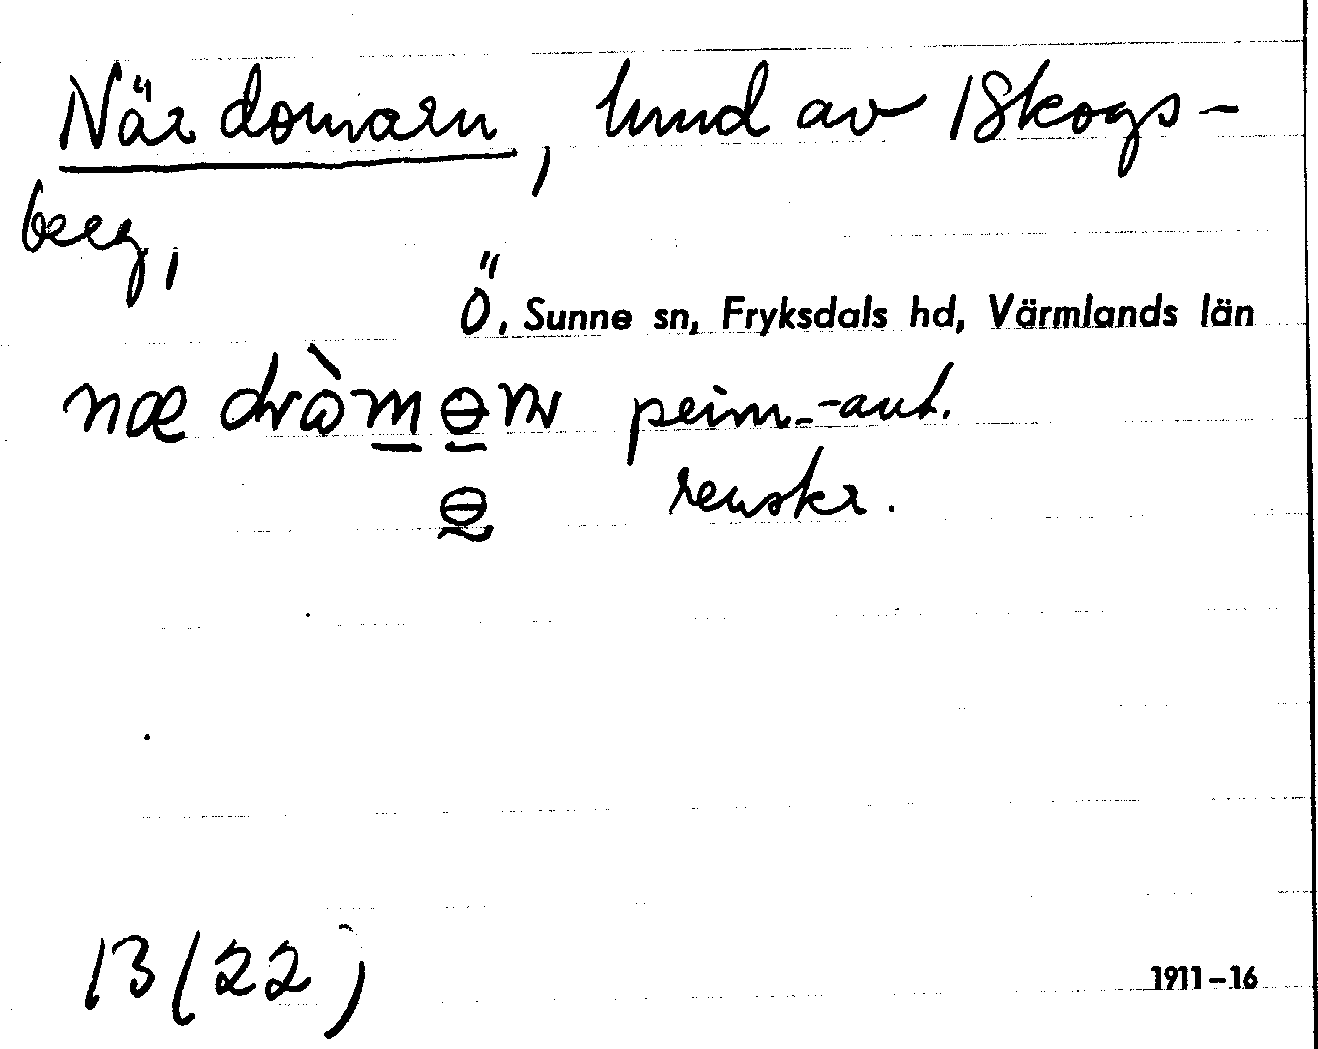 När domarn, hmd av 1Skogs-
berg,
Ö, Sunne sn, Fryksdals hd, Värmlands län
næ
prim.-ant.
renskr.
13 (22)
1911-16